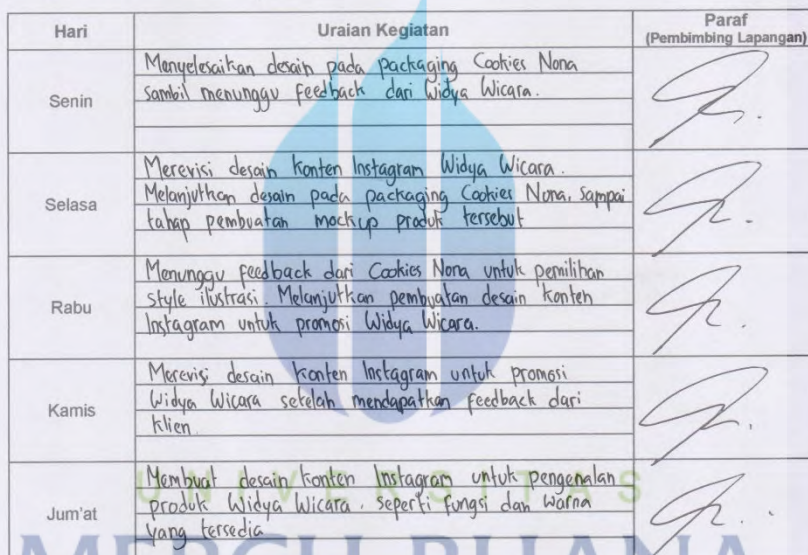 Hari
Uraian Kegiatan
Paraf
(Pembimbing Lapangan)
Senin
Menyelesaikan desain pada packaging Cookies Nona
sambil menunggu feedback dari Widya Wicara.
Selasa
Merevisi desain konten Instagram Widya Wicara.
Melanjutkan desain pada packaging Cookies Nona, sampai
tahap pembuatan mockup produk tersebut
Rabu
Menunggu feedback dari Cookies Nona untuk pemilihan
style ilustrasi. Melanjutkan pembuatan desain konten
Instagram untuk promosi Widya Wicara.
Kamis
Merevisi desain konten Instagram untuk promosi
Widya Wicara setelah mendapatkan feedback dari
klien.
Jum'at
Membuat desain konten Instagram untuk pengenalan
produk Widya Wicara. seperti fungsi dan warna
yang tersedia
UNIVERSITAS
MERCU BUANA